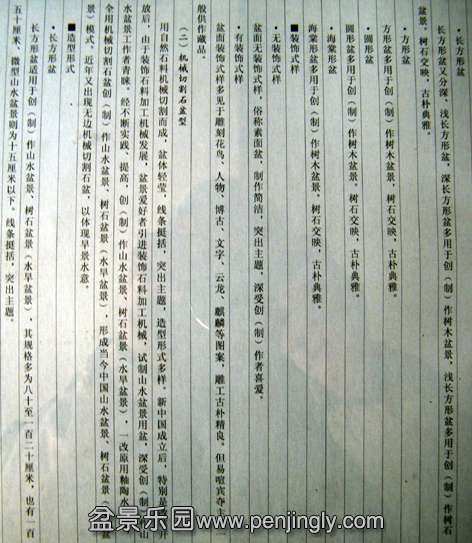 • 长方形盆
长方形盆又分深、浅长方形盆，深长方形盆多用于创（制）作树木盆景，浅长方形盆多用于创（制）作树石
盆景，树石交映，古朴典雅。
• 方形盆
方形盆多用于创（制）作树木盆景，树石交映，古朴典雅。
• 圆形盆
圆形盆多用于创（制）作树木盆景，树石交映，古朴典雅。
• 海棠形盆
海棠形盆多用于创（制）作树木盆景，树石交映，古朴典雅。
■ 装饰式样
• 无装饰式样
盆面无装饰式样，俗称素面盆，制作简洁，突出主题，深受创（制）作者喜爱。
• 有装饰式样
盆面装饰式样多见于雕刻花鸟、人物、博古、文字、云龙、麒麟等图案，雕工古朴精良。但易喧宾夺主，一
般供作藏品。
（二）机械切割石盆型
用自然石料机械切割而成，盆体轻莹，线条挺括，造型形式多样。新中国成立后，特别是
开
放后，由于装饰石料加工机械发展，盆景爱好者引进装饰石料加工机械，试制山水盆景用盆，深受创（制）作山
水盆景工作者青睐。经不断实践、提高，创（制）作山水盆景、树石盆景（水旱盆景），一改原用釉陶水
全用机械切割石盆创（制）作山水盆景、树石盆景（水旱盆景），形成当今中国山水盆景、树石盆景（
盆
景）模式，近年又出现无边机械切割石盆，以体现旱景水意。
■ 造型形式
• 长方形盆
长方形盆适用于创（制）作山水盆景、树石盆景（水旱盆景），其规格多为八十至一百二十厘米，也有一百
五十厘米，微型山水盆景则为十五厘米以下。线条挺括，突出主题。
盆景乐园www.penjingly.com